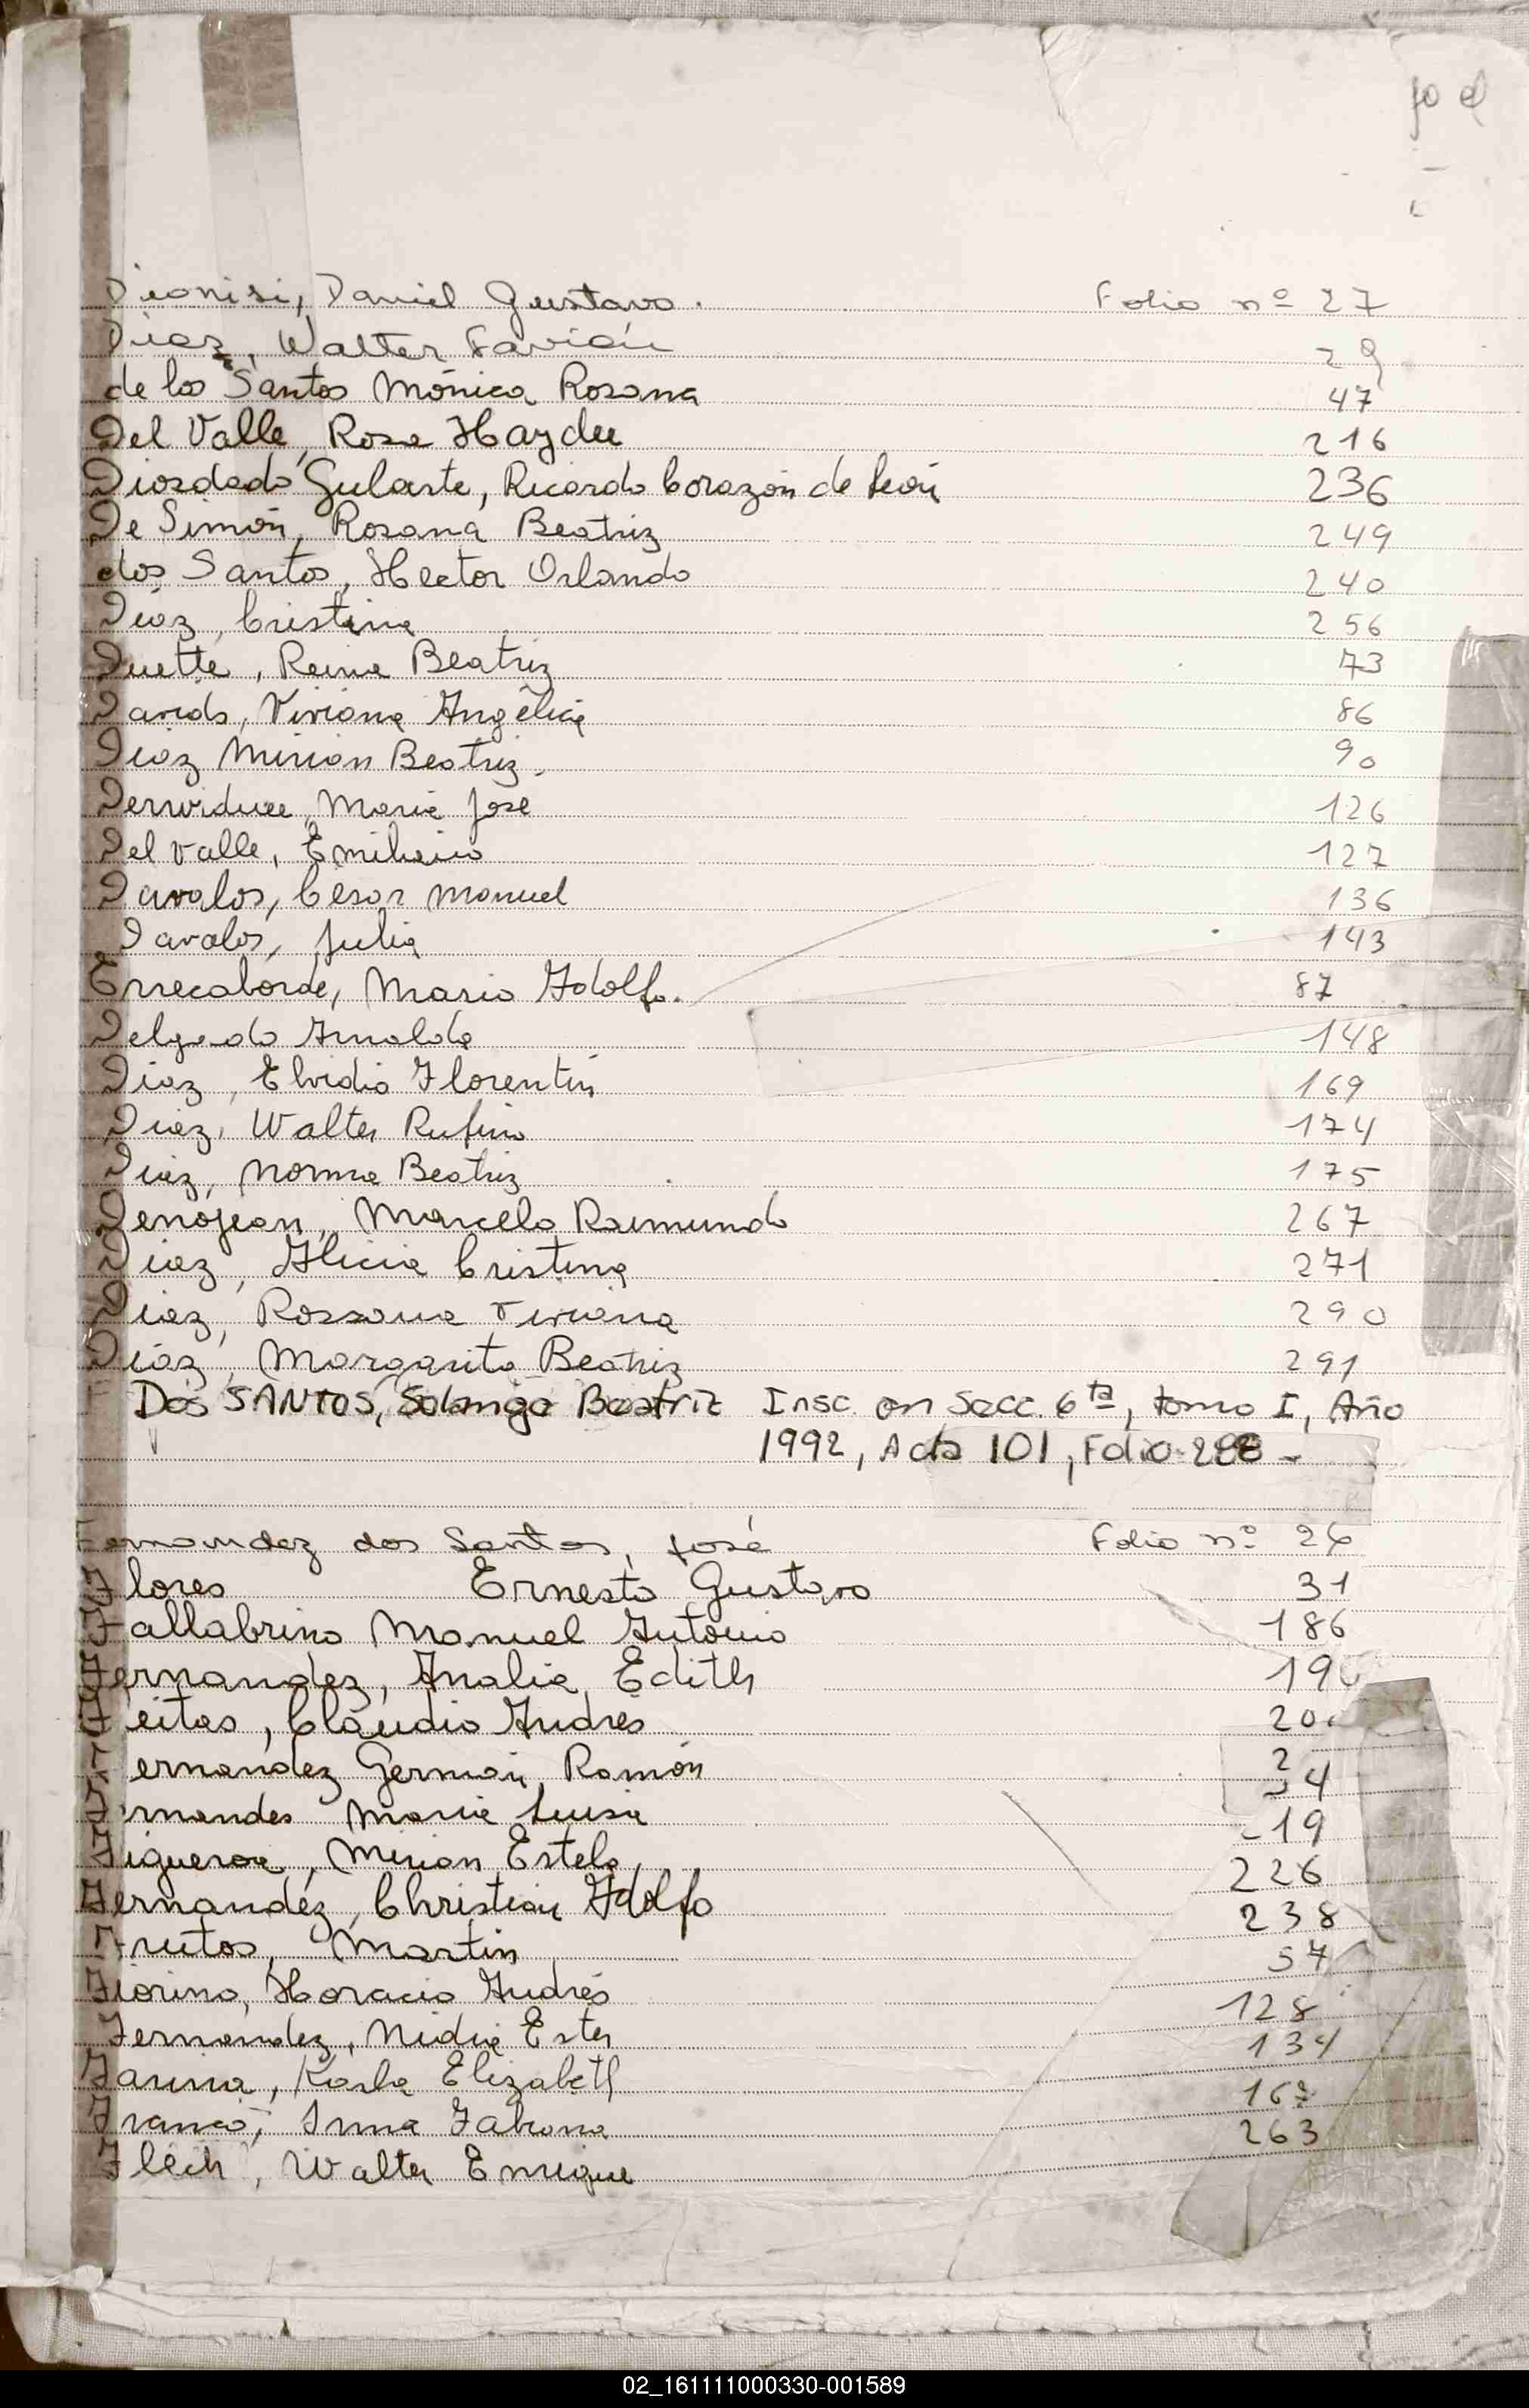 Dionisi, Daniel Gustavo. Folio nº 27
Diaz, Walter Favián 29
de los Santos Mónica Rosana 47
Del Valle, Rosa Haydee 216
Diosdado Gularte, Ricardo Corazón de León 236
De Simón, Rosana Beatriz 249
dos Santos, Hector Orlando 240
Diaz, Cristina 256
Duette, Reina Beatriz 73
Davids, Viviana Angélica 86
Diaz Mirian Beatriz. 90
María José 126
Del Valle, Emiliano 127
Davalos, César Manuel 136
Davalos, Julia 143
Errecaborde, Mario Adolfo. 87
Delgado Arnaldo 148
Diaz, Elvidio Florentín 169
Diaz, Walter Rufino 174
Diaz, Norma Beatriz 175
Denojean, Marcelo Raimundo 267
Diaz, Alicia Cristina 271
Diaz, Rossana Viviana 290
Diaz, Margarita Beatriz 291
Dos SANTOS, Solange Beatriz Insc. en Secc. 6ta, tomo I, Año
1992, Acta 101, Folio
Fernandez dos Santos, José Folio nº 26
Flores Ernesto Gustavo 31
Fallabrino Manuel Antonio 186
Fernandez, Analia Edith
Freitas, Claudio Andrés
Fernandez Germán, Ramón
Fernandes María Luisa
Figueroa, Mirian Estela 226
Fernandez, Christian Adolfo 238
Frutos, Martín 57
Fiorino, Horacio Andrés
Fernandez, Nidia Ester 128
Farina, Karla Elizabeth 134
Franco, Fabiana 167
Flech, Walter Enrique 263
02_161111000330-001589